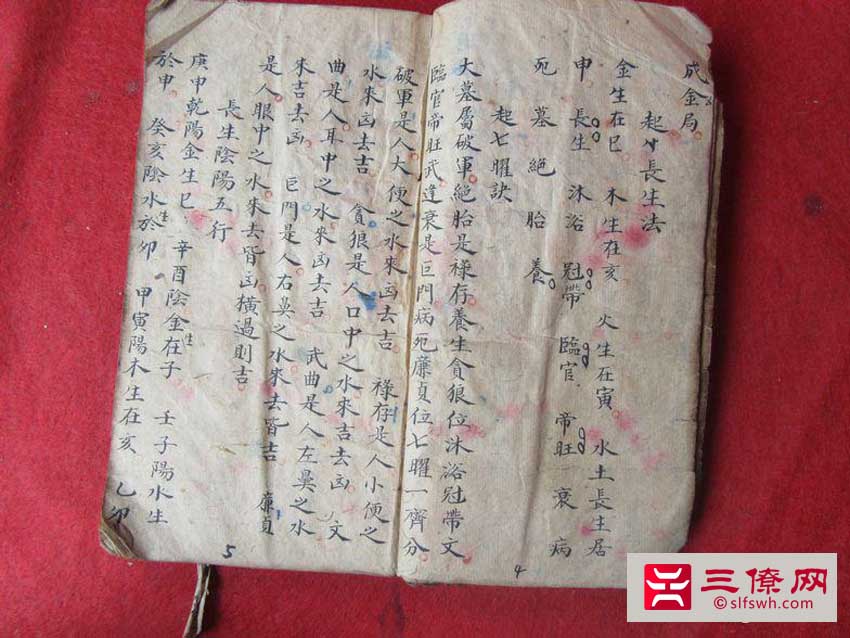 成金局
起十二長生法
金生在巳　木生在亥　火生在寅　水土長生居
申　長生　沐浴　冠帶　臨官　帝旺　衰　病
死　墓　絶　胎　養
起七曜訣
大墓屬破軍絕胎是祿存養生貪狼位沐浴冠帶文
臨官帝旺武逢衰是巨門病死廉貞位七曜一齊分
破軍是人大便之水來凶去吉　祿存是人小便之
水來凶去吉　貪狼是人口中之水來吉去凶　文
曲是人耳中之水來凶去吉　武曲是人左鼻之水
來吉去凶　巨門是人右鼻之水來去皆吉　廉貞
是人眼中之水來去皆凶橫過則吉
長生陰陽五行
庚申乾陽金生巳　辛酉陰金生在子　壬子陽水生
於申　癸亥陰水生於卯　甲寅陽木生在亥　乙卯
4
5
三僚网
©slfswh.com